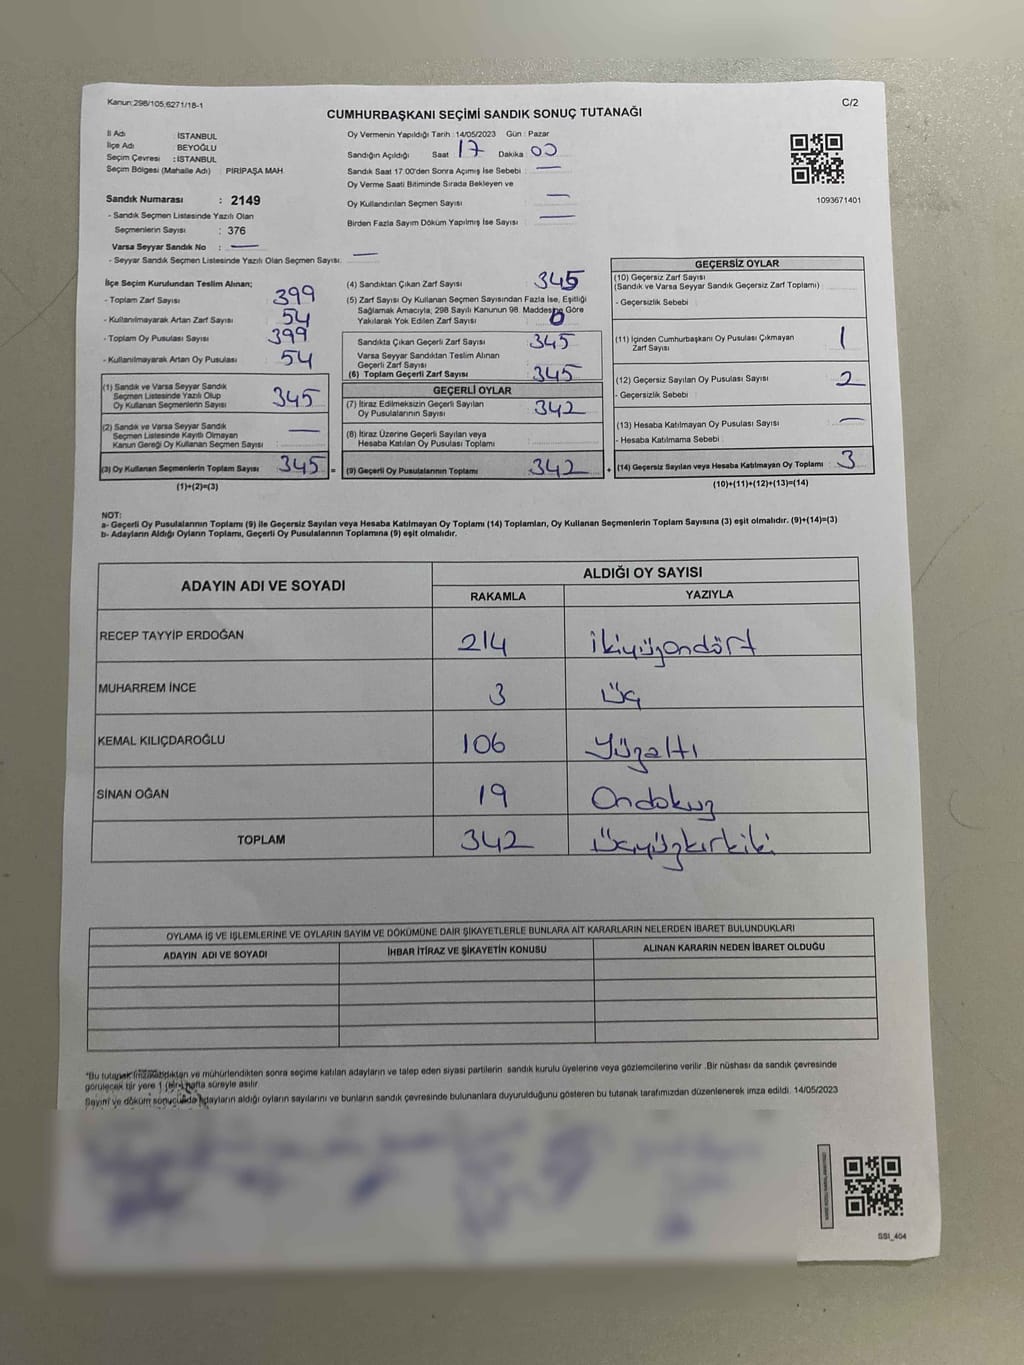 Kanun:298/105;6271/18-1
C/2
CUMHURBAŞKANI SEÇİMİ SANDIK SONUÇ TUTANAĞI
İl Adı : İSTANBUL
İlçe Adı : BEYOĞLU
Seçim Çevresi : İSTANBUL
Seçim Bölgesi (Mahalle Adı) PİRİPAŞA MAH
Sandık Numarası : 2149
- Sandık Seçmen Listesinde Yazılı Olan
Seçmenlerin Sayısı : 376
Varsa Seyyar Sandık No : —
- Seyyar Sandık Seçmen Listesinde Yazılı Olan Seçmen Sayısı: —
Oy Vermenin Yapıldığı Tarih : 14/05/2023 Gün : Pazar
Sandığın Açıldığı Saat 17 Dakika 00
Sandık Saat 17:00'den Sonra Açımış İse Sebebi : —
Oy Verme Saati Bitiminde Sırada Bekleyen ve
Oy Kullandırılan Seçmen Sayısı —
Birden Fazla Sayım Döküm Yapılmış İse Sayısı : —
1093671401
İlçe Seçim Kurulundan Teslim Alınan;
- Toplam Zarf Sayısı 399
- Kullanılmayarak Artan Zarf Sayısı 54
- Toplam Oy Pusulası Sayısı 399
- Kullanılmayarak Artan Oy Pusulası 54
(1) Sandık ve Varsa Seyyar Sandık
Seçmen Listesinde Yazılı Olup
Oy Kullanan Seçmenlerin Sayısı 345
(2) Sandık ve Varsa Seyyar Sandık
Seçmen Listesinde Kayıtlı Olmayan
Kanun Gereği Oy Kullanan Seçmen Sayısı —
(3) Oy Kullanan Seçmenlerin Toplam Sayısı 345 =
(1)+(2)=(3)
(4) Sandıktan Çıkan Zarf Sayısı 345
(5) Zarf Sayısı Oy Kullanan Seçmen Sayısından Fazla İse, Eşitliği
Sağlamak Amacıyla; 298 Sayılı Kanunun 98. Maddesine Göre
Yakılarak Yok Edilen Zarf Sayısı 0
Sandıkta Çıkan Geçerli Zarf Sayısı 345
Varsa Seyyar Sandıktan Teslim Alınan
Geçerli Zarf Sayısı
(6) Toplam Geçerli Zarf Sayısı 345
GEÇERLİ OYLAR
(7) İtiraz Edilmeksizin Geçerli Sayılan
Oy Pusulalarının Sayısı 342
(8) İtiraz Üzerine Geçerli Sayılan veya
Hesaba Katılan Oy Pusulası Toplamı
(9) Geçerli Oy Pusulalarının Toplamı 342 +
GEÇERSİZ OYLAR
(10) Geçersiz Zarf Sayısı
(Sandık ve Varsa Seyyar Sandık Geçersiz Zarf Toplamı)
- Geçersizlik Sebebi
(11) İçinden Cumhurbaşkanı Oy Pusulası Çıkmayan
Zarf Sayısı 1
(12) Geçersiz Sayılan Oy Pusulası Sayısı 2
- Geçersizlik Sebebi
(13) Hesaba Katılmayan Oy Pusulası Sayısı —
- Hesaba Katılmama Sebebi
(14) Geçersiz Sayılan veya Hesaba Katılmayan Oy Toplamı 3
(10)+(11)+(12)+(13)=(14)
NOT:
a- Geçerli Oy Pusulalarının Toplamı (9) ile Geçersiz Sayılan veya Hesaba Katılmayan Oy Toplamı (14) Toplamları, Oy Kullanan Seçmenlerin Toplam Sayısına (3) eşit olmalıdır. (9)+(14)=(3)
b- Adayların Aldığı Oyların Toplamı, Geçerli Oy Pusulalarının Toplamına (9) eşit olmalıdır.
ADAYIN ADI VE SOYADI ALDIĞI OY SAYISI
RAKAMLA YAZIYLA
RECEP TAYYİP ERDOĞAN 214 ikiyüzondört
MUHARREM İNCE 3 üç
KEMAL KILIÇDAROĞLU 106 Yüzaltı
SİNAN OĞAN 19 Ondokuz
TOPLAM 342 üçyüzkırkiki
OYLAMA İŞ VE İŞLEMLERİNE VE OYLARIN SAYIM VE DÖKÜMÜNE DAİR ŞİKAYETLERLE BUNLARA AİT KARARLARIN NELERDEN İBARET BULUNDUKLARI
ADAYIN ADI VE SOYADI İHBAR İTİRAZ VE ŞİKAYETİN KONUSU ALINAN KARARIN NEDEN İBARET OLDUĞU
"Bu tutanak imzalandıktan ve mühürlendikten sonra seçime katılan adayların ve talep eden siyasi partilerin sandık kurulu üyelerine veya gözlemcilerine verilir .Bir nüshası da sandık çevresinde
görülecek bir yere 1 (bir) hafta süreyle asılır.
Sayım ve döküm sonucunda adayların aldığı oyların sayılarını ve bunların sandık çevresinde bulunanlara duyurulduğunu gösteren bu tutanak tarafımızdan düzenlenerek imza edildi. 14/05/2023
SSI_404